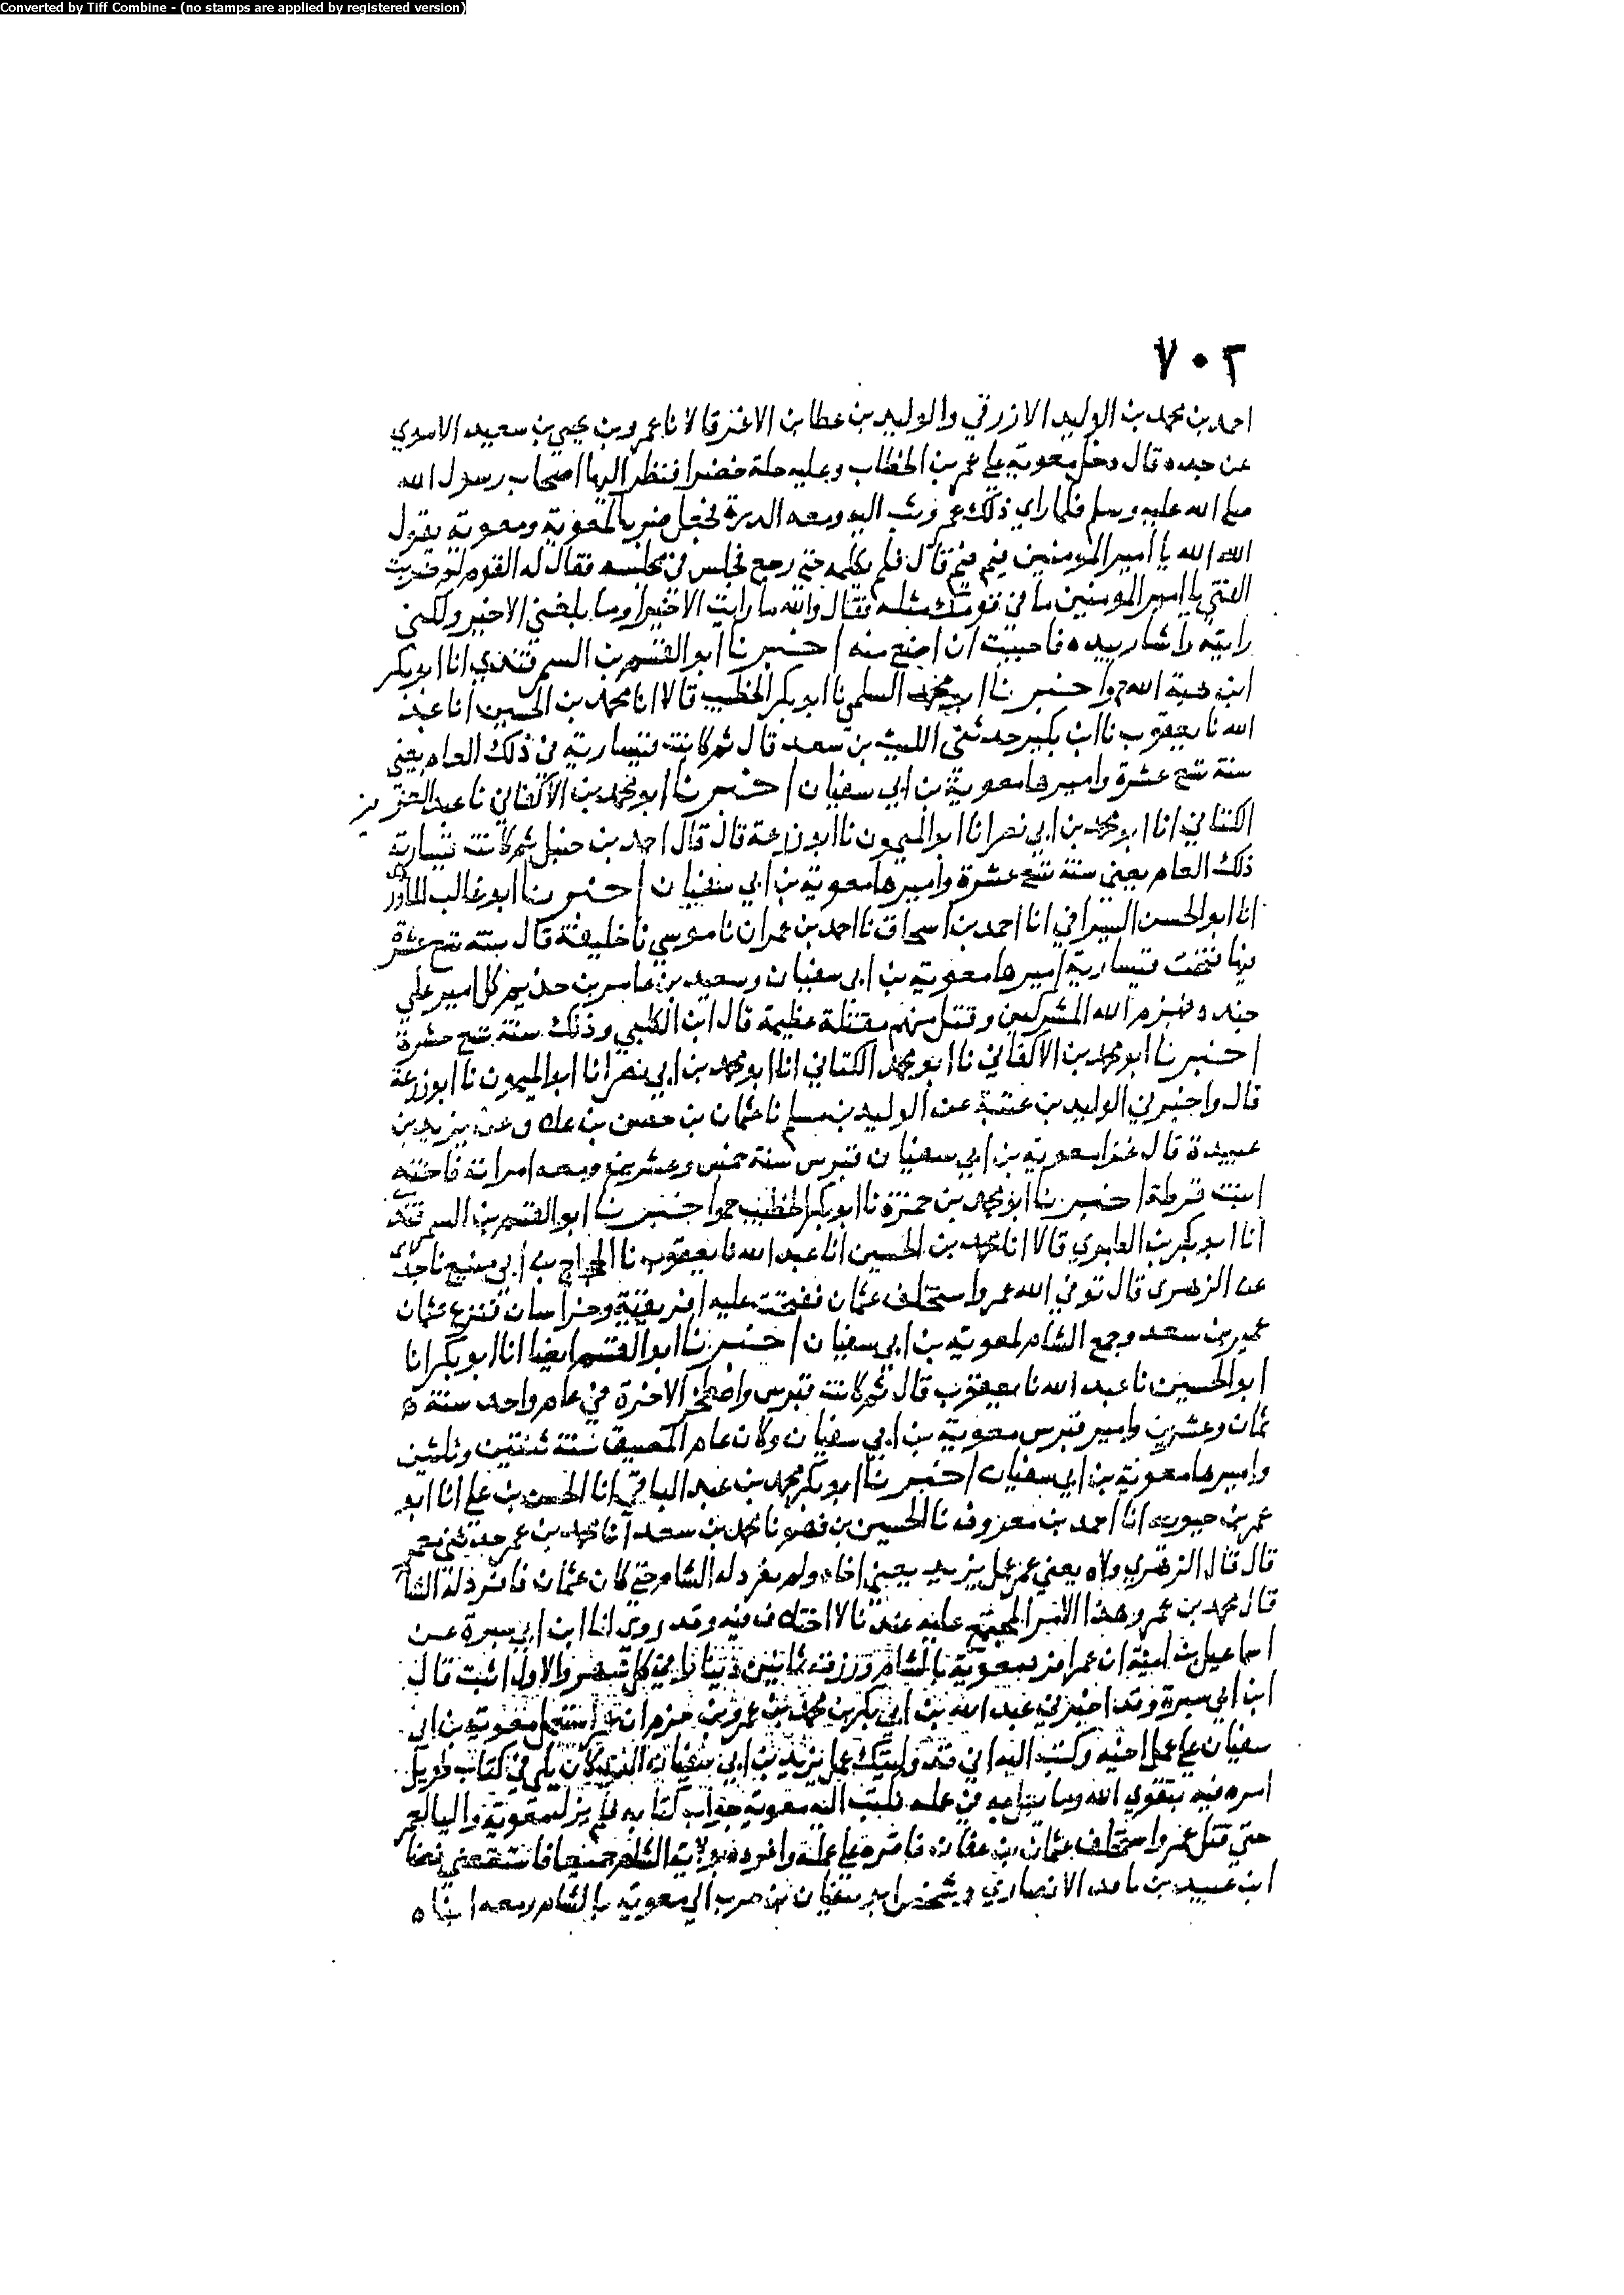 Converted by Tiff Combine - (no stamps are applied by registered version)
٧٠٢
احمد بن محمد بن الوليد الازرقي والوليد بن عطا بن الاغر قالا نا عمرو بن يحيى بن سعيد الاموي
عن جده قال دخل معوية على عمر بن الخطاب وعليه حلة خضرا فنظر اليها اصحاب رسول الله
صلى الله عليه وسلم فلما راى ذلك عمر وثب اليه ومعه الدرة فجعل ضربا لمعوية ومعوية يقول
الله الله يا امير المومنين فيم فيم قال فلم يكلمه حتى رجع فجلس في مجلسه فقال له القوم لم ضربت
الفتى يا امير المومنين ما في قومك مثله فقال والله ما رايت الا خيرا وما بلغني الا خير ولكني
رايته واشار بيده فاحببت ان اضع منه اخبرنا ابو القسم بن السمرقندي انا ابو بكر
ابن هبة الله ح واخبرنا ابو محمد السلمي نا ابو بكر الخطيب قالا انا محمد بن الحسين انا عبد
الله نا يعقوب نا ابن بكير حدثني الليث بن سعد قال ثم كانت قيسارية من ذلك العام يعني
سنة تسع عشرة واميرها معوية بن ابي سفيان اخبرنا ابو محمد بن الاكفاني نا عبد العزيز
الكتاني انا ابو محمد بن ابي نصر انا ابو الميمون نا ابو زرعة قال قال احمد بن حنبل ثم كانت قيسارية
ذلك العام يعني سنة تسع عشرة واميرها معوية بن ابي سفيان اخبرنا ابو غالب الماوردي
انا ابو الحسن السيرافي انا احمد بن اسحاق نا احمد بن عمران نا موسى نا خليفة قال سنة تسع عشرة
فيها فتحت قيسارية اميرها معوية بن ابي سفيان وسعيد بن عامر بن حذيم كل امير على
جنده فهزم الله المشركين وقتل منهم مقتلة عظيمة قال ابن الكلبي وذلك سنة تسع عشرة
اخبرنا ابو محمد بن الاكفاني نا ابو محمد الكتاني انا ابو محمد بن ابي نصر انا ابو الميمون نا ابو زرعة
قال واخبرني الوليد بن عتبة عن الوليد بن مسلم نا عثمان بن حصن بن علاق عن يزيد بن
عبيدة قال غزا معوية بن ابي سفيان قبرس سنة خمس وعشرين ومعه امراته فاختة
ابنت قرظة اخبرنا ابو محمد بن حمزة نا ابو بكر الخطيب ح واخبرنا ابو القسم بن السمرقندي
انا ابو بكر بن الطبري قالا انا محمد بن الحسين انا عبد الله نا يعقوب نا الحجاج بن ابي منيع نا جدي
عن الزهري قال توفي الله عمر واستخلف عثمان ففتحت عليه افريقية وخراسان فنزع عثمان
عمير بن سعد وجمع الشام لمعوية بن ابي سفيان اخبرنا ابو القسم ايضا انا ابو بكر انا
ابو الحسين نا عبد الله نا يعقوب قال ثم كانت قبرس واصطخر الاخرة في عام واحد سنة
ثمان وعشرين وامير قبرس معوية بن ابي سفيان وكان عام المضيق سنة ثنتين وثلثين
واميرها معوية بن ابي سفيان اخبرنا ابو بكر محمد بن عبد الباقي انا الحسن بن علي انا ابو
عمر بن حيويه انا احمد بن معروف نا الحسين بن فهم نا محمد بن سعد انا محمد بن عمر حدثني معمر
قال قال الزهري ولاه يعني عمر عمل يزيد يعني اخاه ولم يفرد له الشام حتى كان عثمان فافرد له الشام
قال محمد بن عمر وهذا الامر المجتمع عليه عندنا لا اختلاف فيه وقد روى انا ابن ابي سبرة عن
اسماعيل بن امية ان عمر افرد معوية بالشام ورزقه ثمانين دينارا في كل شهر والاول اثبت قال
ابن ابي سبرة وقد اخبرني عبد الله بن ابي بكر بن محمد بن عمرو بن حزم ان عمر استعمل معوية بن ابي
سفيان على عمل اخيه وكتب اليه اني قد وليتك عمل يزيد بن ابي سفيان الذي كان يلي في كتاب طويل
امره فيه بتقوى الله وما يعمل به في عمله فكتب اليه معوية جواب كتابه فلم يزل معوية واليا لعمر
حتى قتل عمر واستخلف عثمان بن عفان فاقره على عمله وافرده بولاية الشام جميعا فاستقضى فضالة
ابن عبيد بن نافد الانصاري وشخص ابو سفيان بن حرب الى معوية بالشام ومعه ابناه